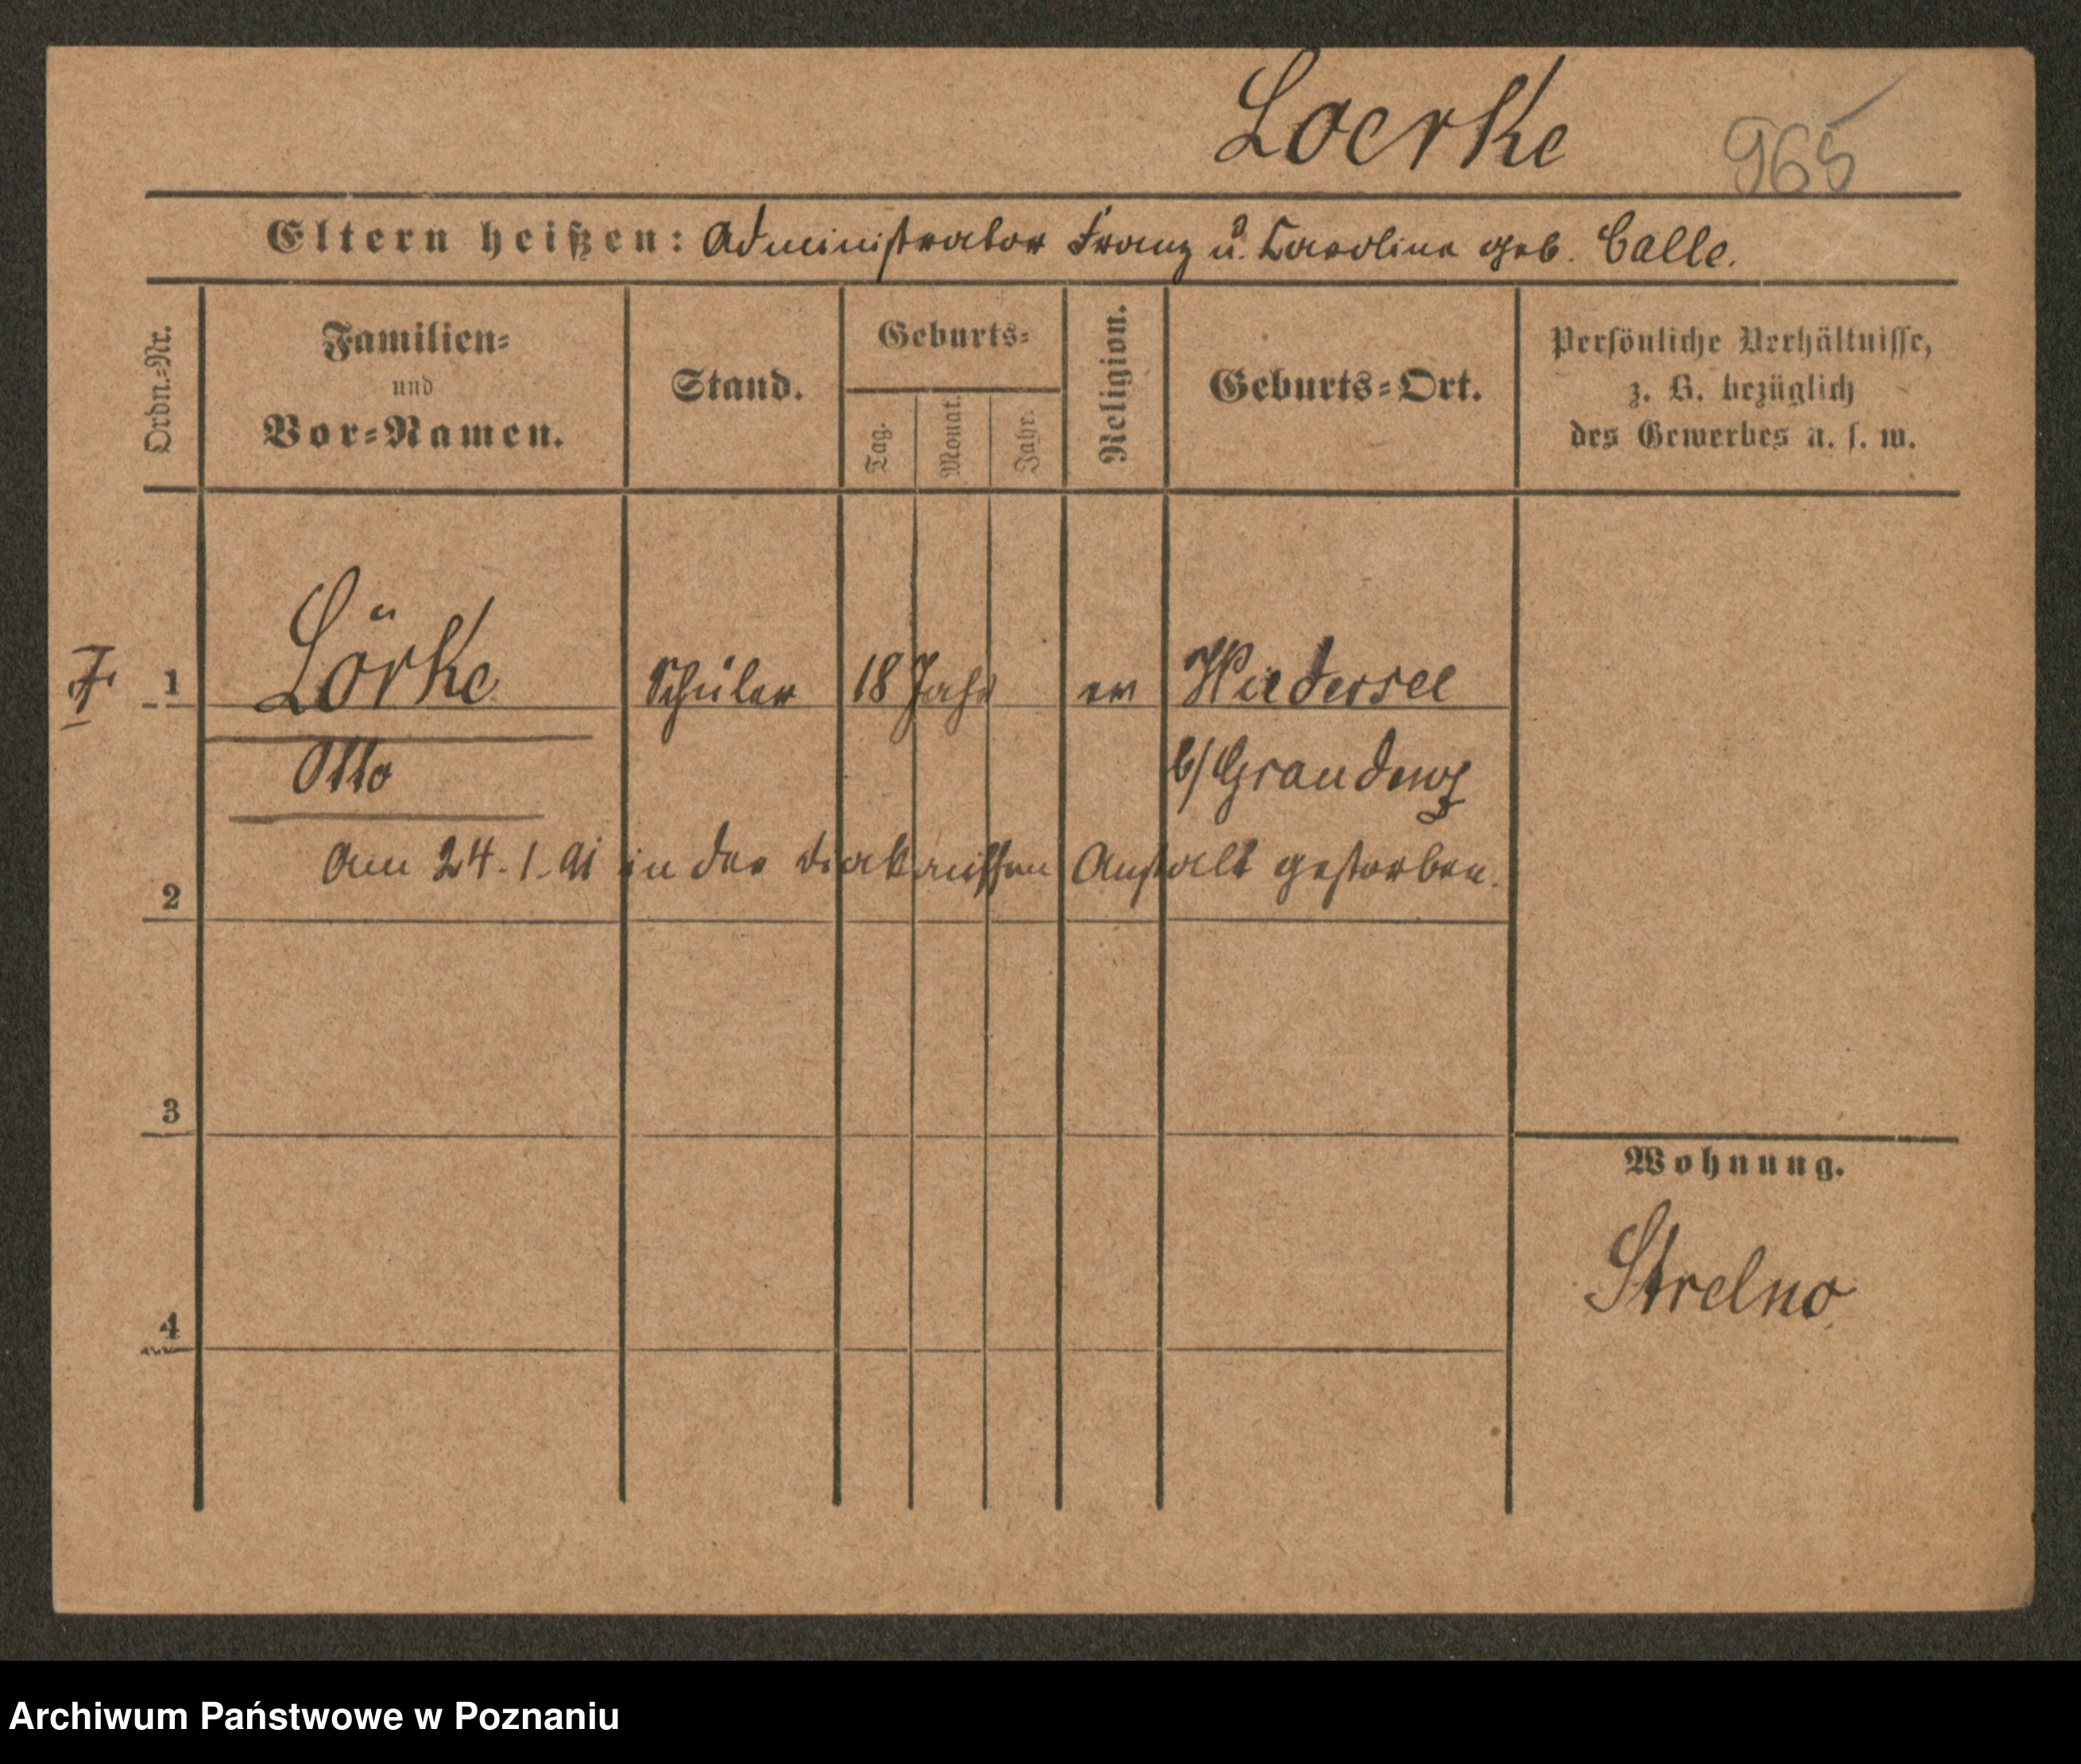 Loerke 965
Eltern heißen: Administrator Franz u. Caroline geb. Calle.
Ordn.-Nr.
Familien-
und
Vor-Namen.
Stand.
Geburts-
Tag.
Monat.
Jahr.
Religion.
Geburts-Ort.
Persönliche Verhältnisse,
z. B. bezüglich
des Gewerbes u. s. w.
1 Lörke Schüler 18 Jahr ev
Otto b/ Graudenz
Am 24.1.91 in der Anstalt gestorben.
2
3
Wohnung.
Strelno
4
Archiwum Państwowe w Poznaniu